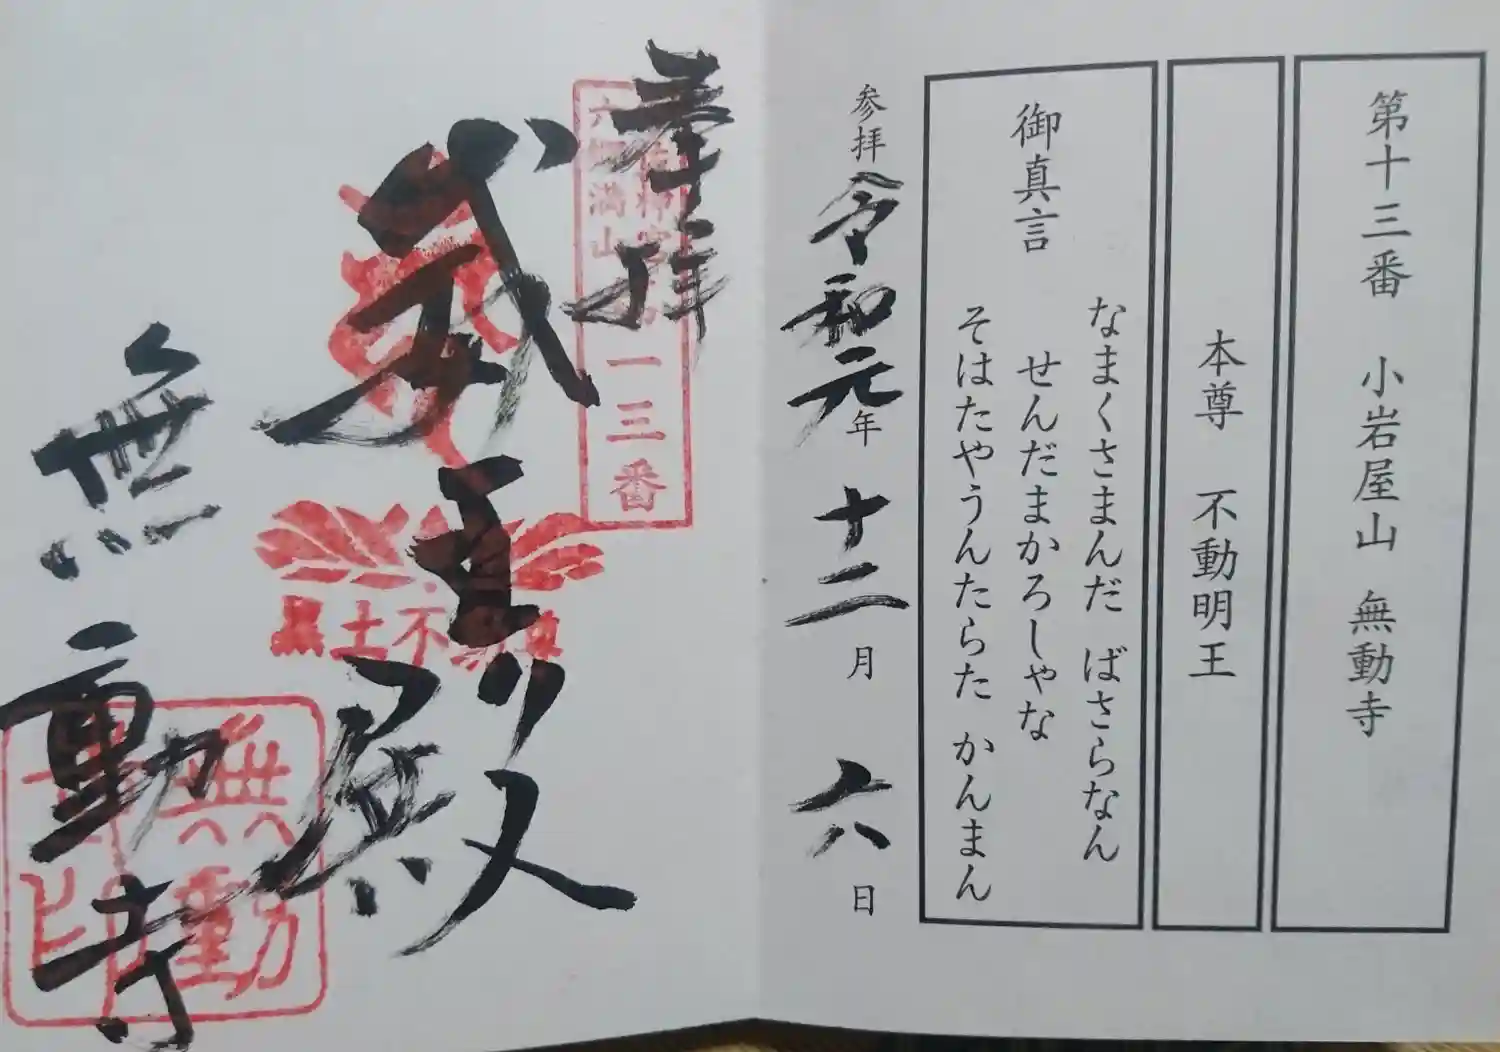 第十三番 小岩屋山 無動寺
本尊 不動明王
御真言
なまくさまんだ ばさらなん
せんだまかろしゃな
そはたやうんたらた かんまん
参拝 令和元年 十二月 六日
奉拝
六郷満山
一三番
明王殿
無動寺
無動